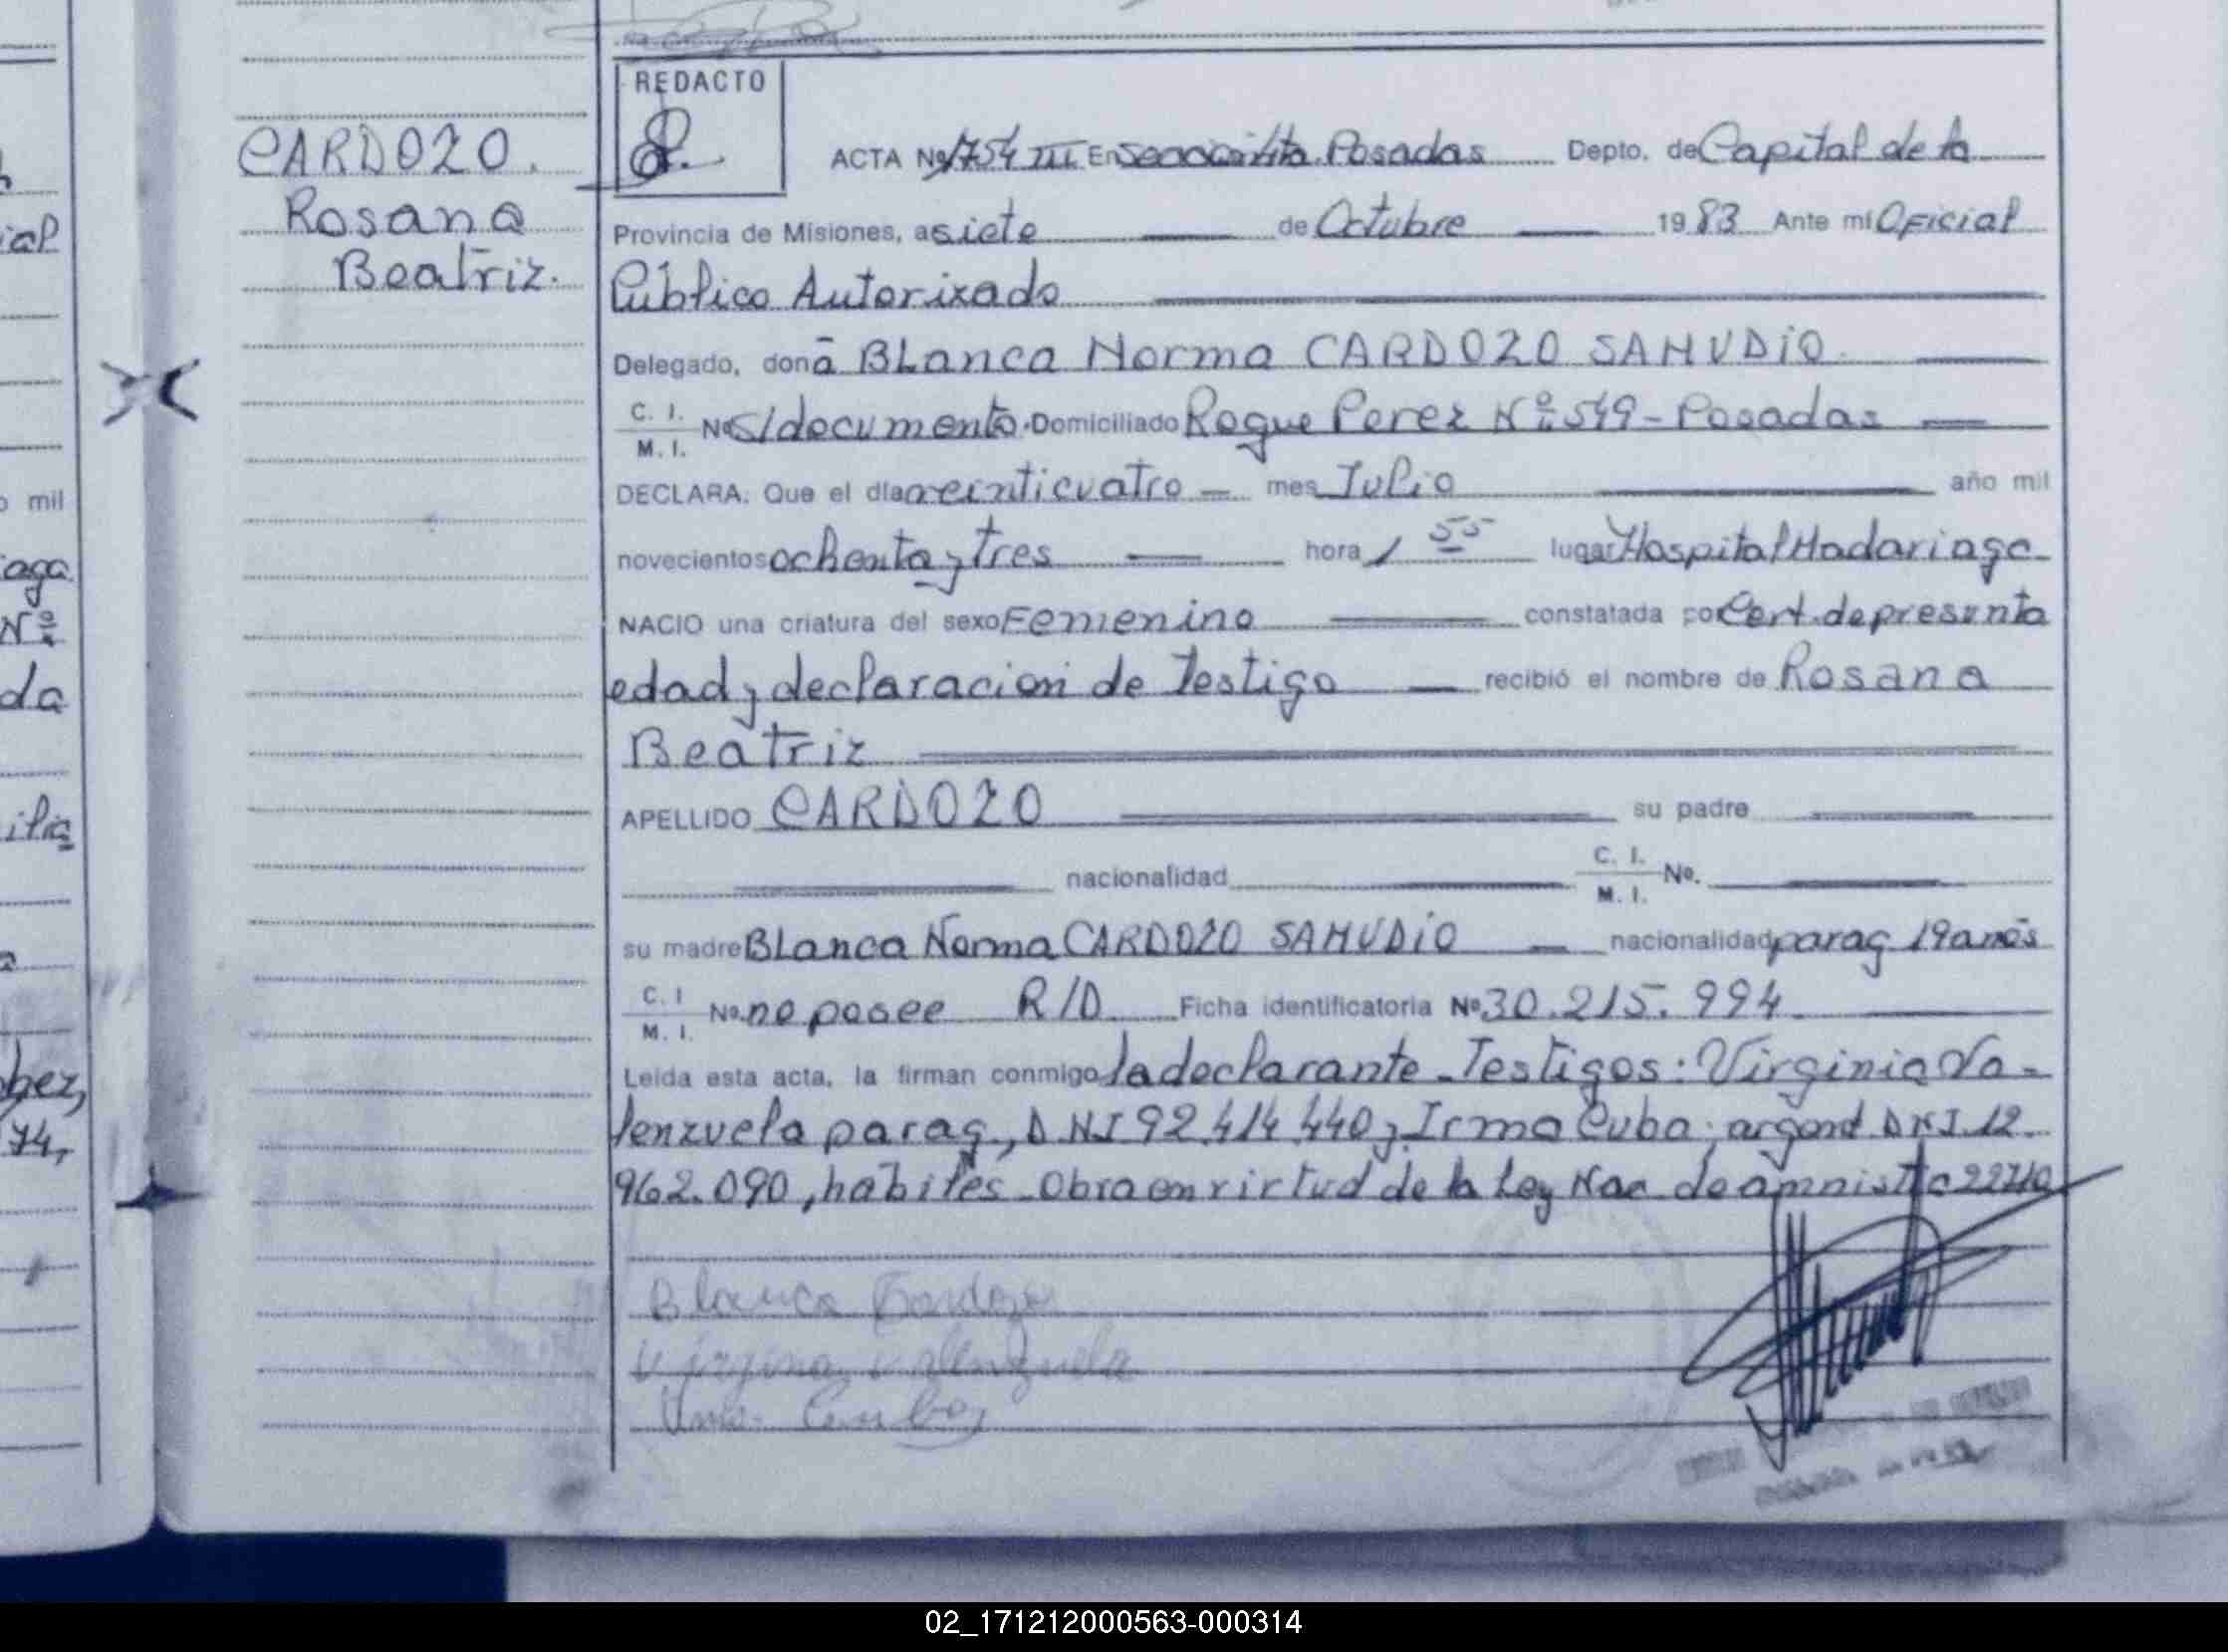 REDACTO
CARDOZO.
Rosana
Beatriz.
ACTA Nº 1754 III En Posadas Depto. de Capital de la
Provincia de Misiones, a siete de Octubre 1983 Ante mí Oficial
Público Autorizado
Delegado, doña BLanca Norma CARDOZO SAMUDIO
C. I.
M. I. Nº S/documento. Domiciliado Roque Perez Nº 549 - Posadas
DECLARA: Que el día veinticuatro mes Julio año mil
novecientos ochenta y tres hora 1 55 lugar Hospital Madariaga
NACIO una criatura del sexo Femenino constatada por Cert. de presunta
edad y declaracion de Testigo recibió el nombre de Rosana
Beatriz
APELLIDO CARDOZO su padre
nacionalidad C. I. M. I. No.
su madre BLanca Norma CARDOZO SAMUDIO nacionalidad parag 19 años
C. I M. I. No. no posee R/D Ficha identificatoria Nº 30.215.994
Leída esta acta, la firman conmigo la declarante - Testigos: Virginia Va-
lenzuela parag, D.N.I 92.414.440 y Irma Cuba, argent. D N I. 12.
962.090, hábiles - Obra en virtud de la Ley Nac. de amnistia 22710
Blanca Cardozo
Virgina Valenzuela
Irma Cuba
ial
o mil
aga
Nº
da
ilia
bez,
74,
02_171212000563-000314